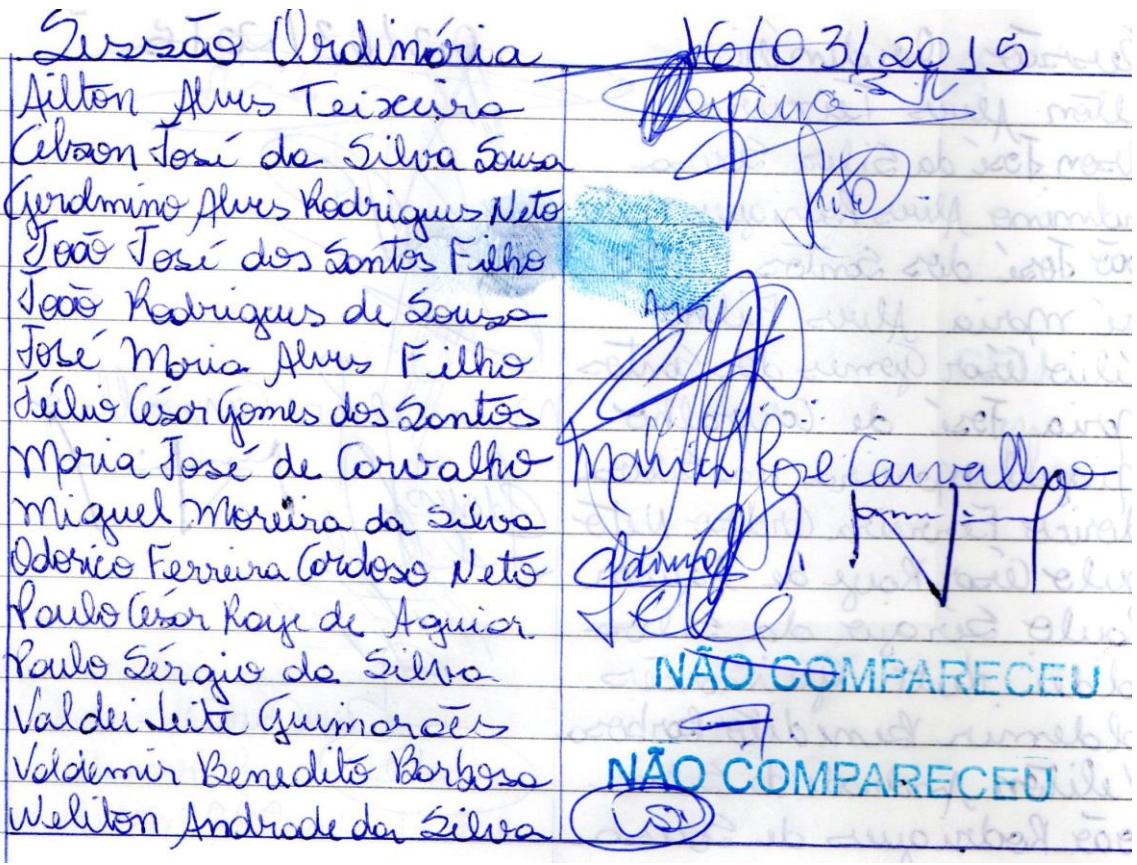 Sessão Ordinária 16/03/2015
Ailton Alves Teixeira
Celson José da Silva Sousa
Geralmino Alves Rodrigues Neto Neto
João José dos Santos Filho
João Rodrigues de Sousa
José Maria Alves Filho
Júlio César Gomes dos Santos
Maria José de Carvalho Maria José Carvalho
Miguel Moreira da Silva
Odorico Ferreira Cardoso Neto
Paulo César Raye de Aguiar
Paulo Sérgio da Silva NÃO COMPARECEU
Valdei Leite Guimarães
Valdemir Benedito Barbosa NÃO COMPARECEU
Weliton Andrade da Silva